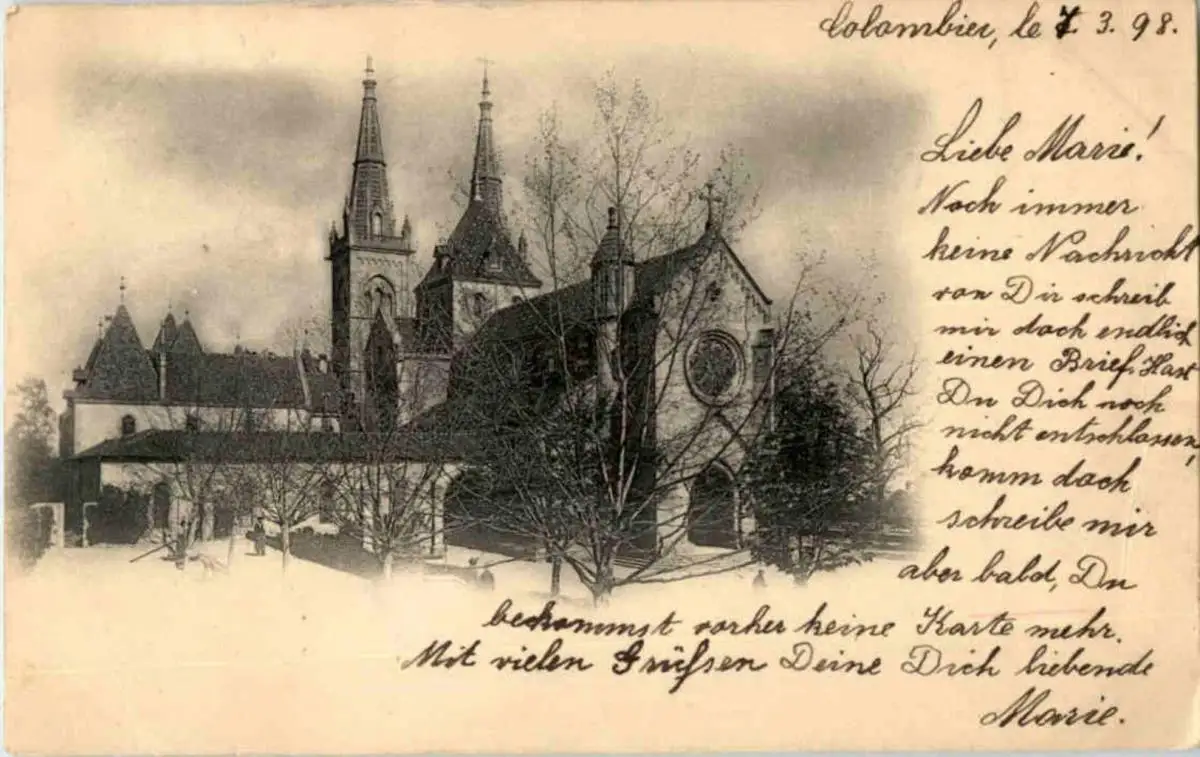 Colombier, le 7. 3. 98.
Liebe Marie!
Noch immer
keine Nachricht
von Dir schreib
mir doch endlich
einen Brief. Hast
Du Dich noch
nicht entschlossen,
komm doch
schreibe mir
aber bald, Du
bekommst vorher keine Karte mehr.
Mit vielen Grüßen Deine Dich liebende
Marie.